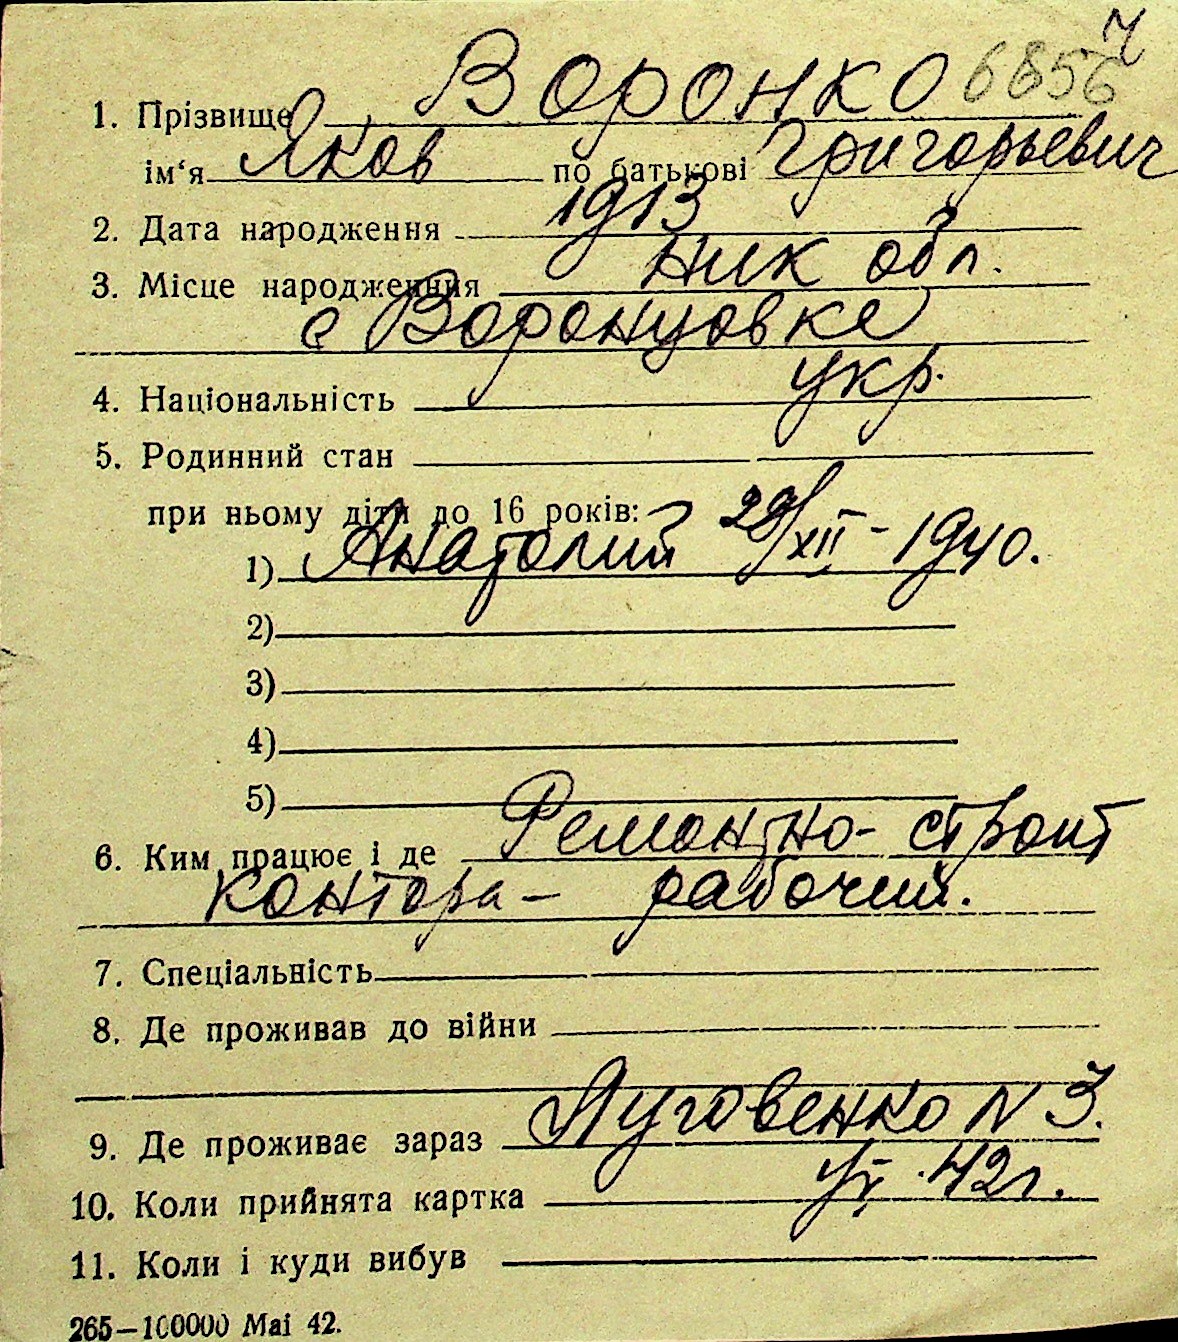 7
1. Прізвище Воронко 6856
ім'я Яков по батькові Григорьевич
2. Дата народження 1913
3. Місце народження Ник обл.
с Воронцовке
4. Національність укр.
5. Родинний стан
при ньому діти до 16 років:
1) Анатолий 29/XII - 1940.
2)
3)
4)
5)
6. Ким працює і де Ремонтно- строит
контора - рабочий.
7. Спеціальність
8. Де проживав до війни
9. Де проживає зараз Луговенко N 3.
10. Коли прийнята картка 42г.
11. Коли і куди вибув
265—100000 Маі 42.